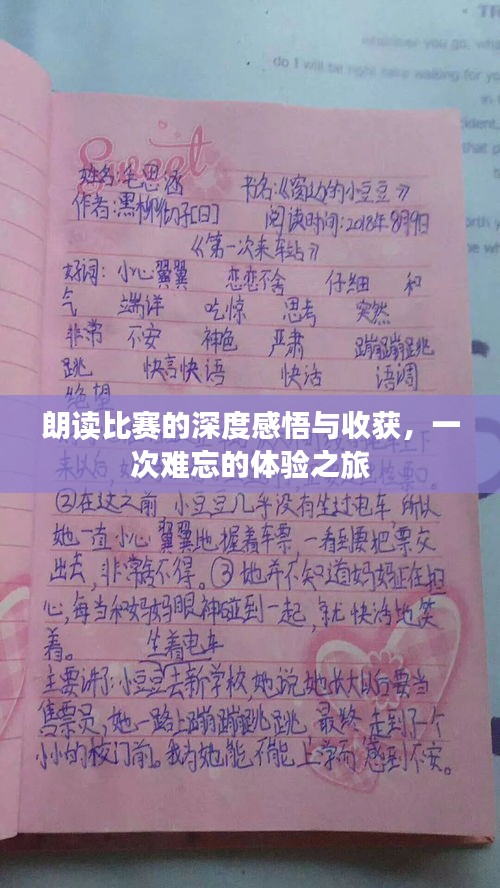 TR
whenever you go, wha
do I will be right here waiting for you
Sweet
姓名:毛思涵 书名:《窗边的小豆豆》
作者:黑柳彻子[日] 阅读时间:2018年8月9日
《第一次来车站》
好词:小心翼翼 恋恋不舍 仔细 和
气 端详 吃惊 思考 突然
非常 不安 神色 严肃 蹦蹦跳
跳 快言快语 快活 语调
绝望
朗读比赛的深度感悟与收获,一
次难忘的体验之旅
②在这之前 小豆豆几乎没有坐过电车,所以
她一直小心翼翼地握着车票,一看到要把票交
出去,非常舍不得。③她并不知道妈妈正在担
心,每当和妈妈眼神碰到一起,就快活地笑
着。 坐着电车
主要讲了小豆豆去新学校,她说她长大以后要当
售票员,她一路上蹦蹦跳跳,最终走到了一个
小小的校门前。我为她能不能上学而感到不安。